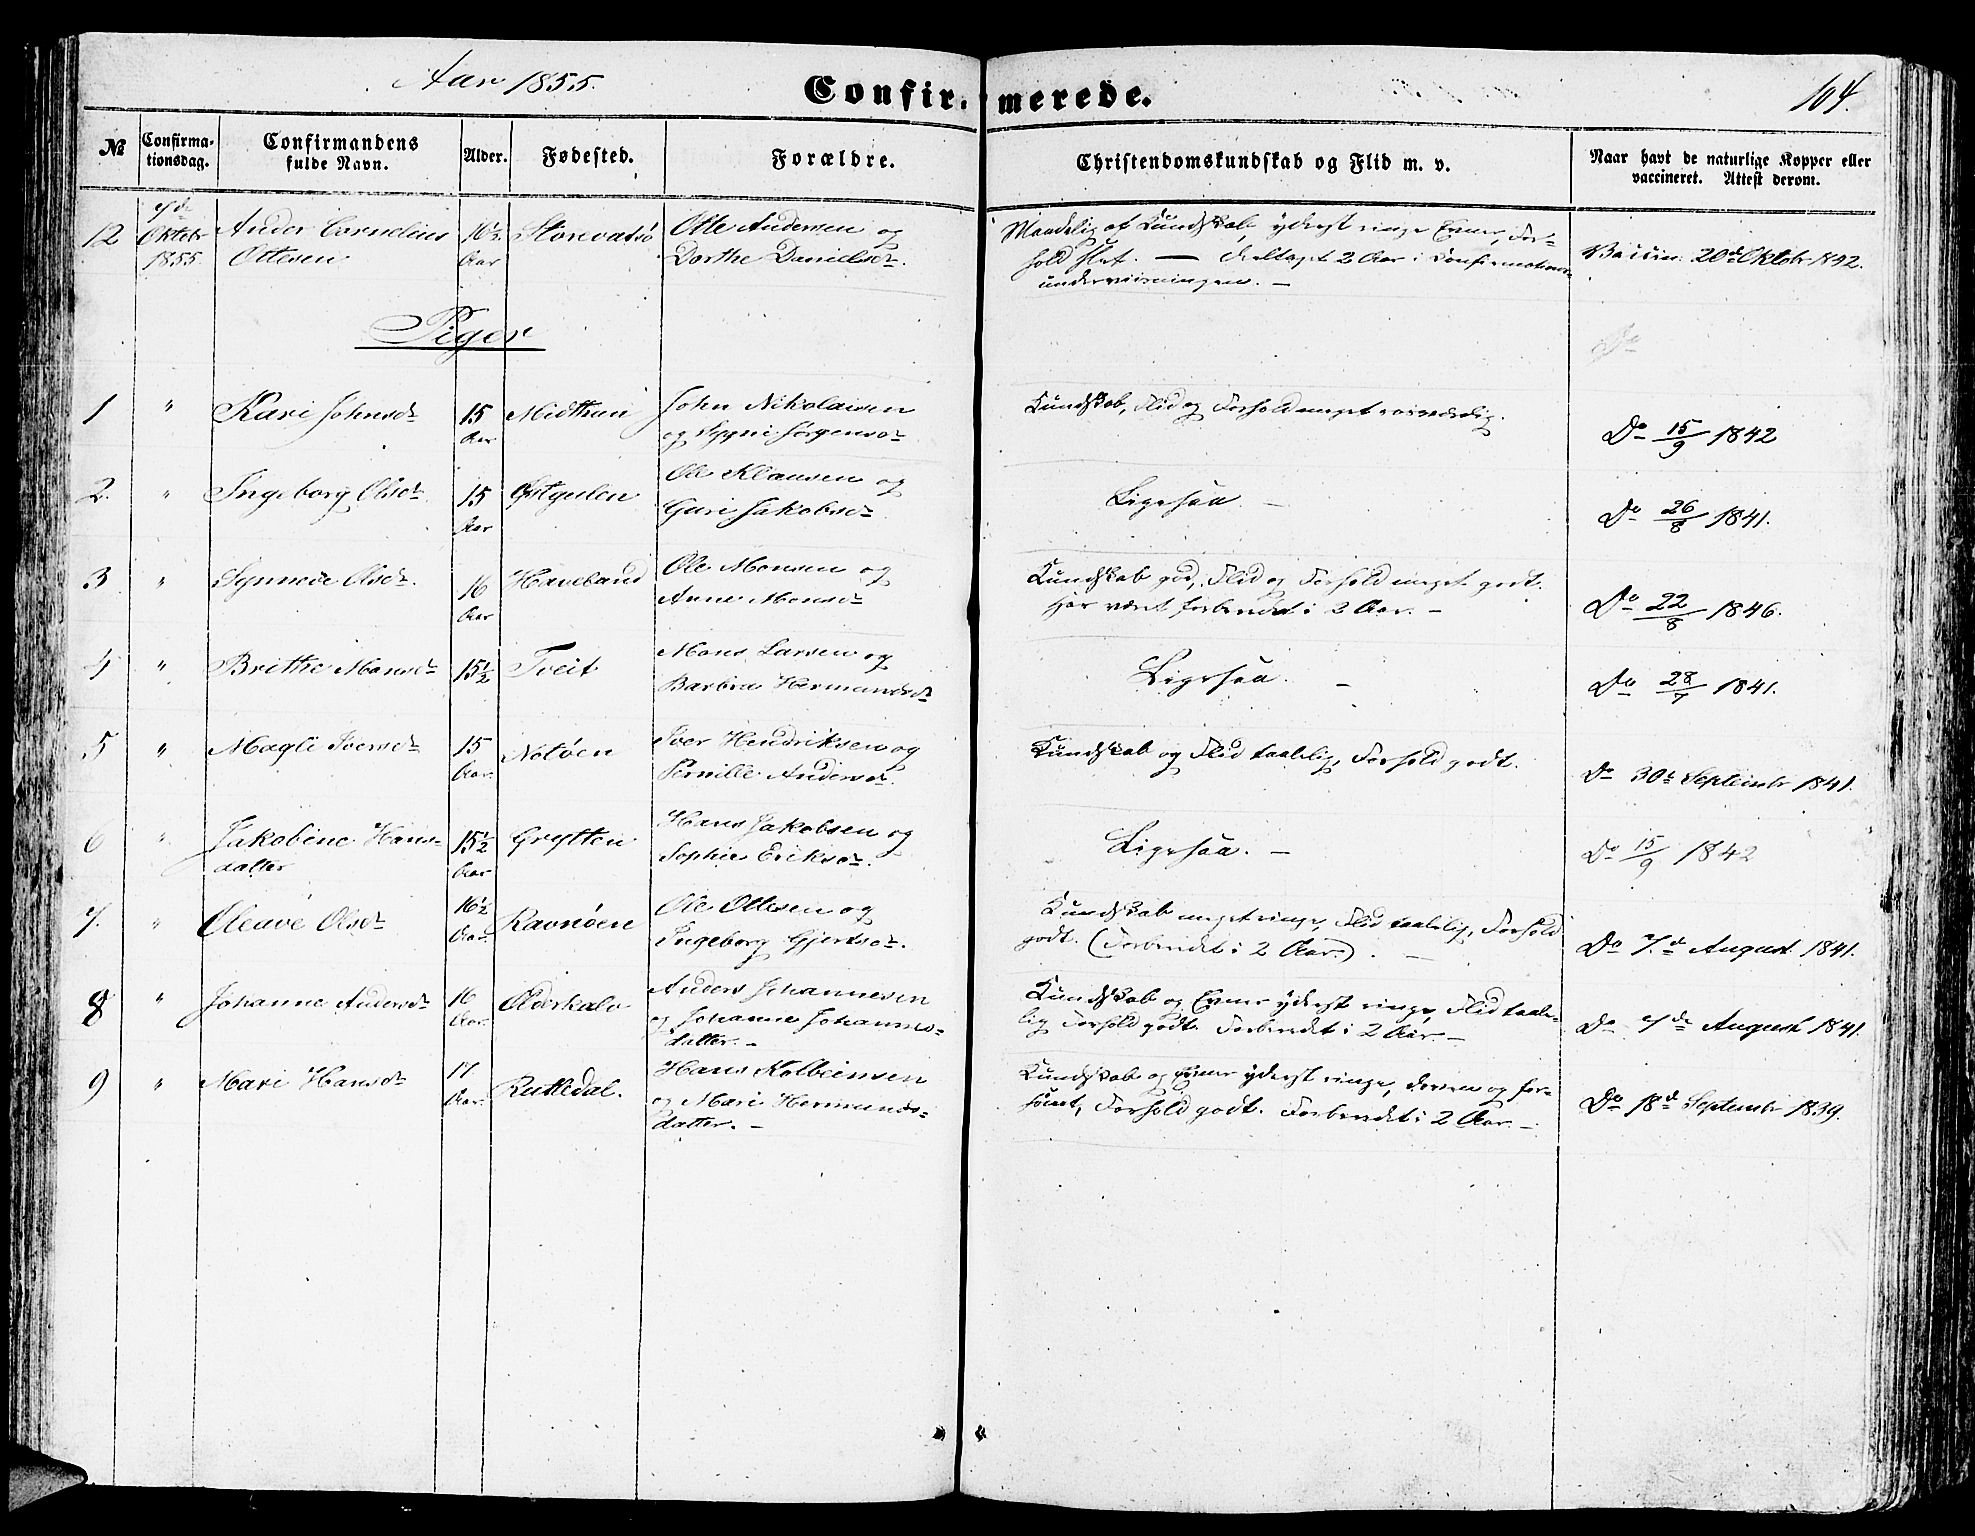 Aar 1855.
Confirmerede.
104.
№ Confirmationsdag. Confirmandens fulde Navn. Alder. Fødested. Forældre. Christendomskundskab og Flid m. v. Naar havt de naturlige Kopper eller vaccineret. Attest derom.
12 7de Oktobr 1855. Ander Cornelius Ottesen 16½ Aar Storevatsø Otte Andersen og Dorthe Danielsdr. Maadelig af Kundskab, yderst ringe Evner, Forhold slet. — deeltaget 2 Aar i Confirmationsundervisningen. — Vaccin: 20de Oktobr 1842.
Piger
Do
1 " Kari Johnsdr 15 Aar Midthun John Nikolaisen og Sygni Jørgensdr Kundskab, Flid og Forhold meget rosværdig. Do 15/9 1842
2. " Ingeborg Olsdr 15 Aar Østgulen Ole Klausen og Guri Jakobsdr Ligesaa. — Do 26/8 1841.
3 " Synneve Olsdr. 16 Aar Haveland Ole Monsen og Anne Monsdr Kundskab god, Flid og Forhold meget godt. Har været forberedet i 2 Aar. — Do 22/8 1846.
4 " Brithe Monsdr 15½ Tveit Mons Larsen og Barbra Hermundsdr Ligesaa. — Do 28/7 1841.
5 " Magli Iversdr 15 Aar. Notøen Iver Hendriksen og Pernille Andersdr. Kundskab og Flid taalelig, Forhold godt. Do 30te Septembr 1841.
6 " Jakobine Hansdatter 15½ Aar Grytten Hans Jakobsen og Sophie Eriksdr. Ligesaa. — Do 15/9 1842
7. " Oleave Olsdr 16½ Aar. Ravnøen Ole Ottesen og Ingeborg Gjertsdr. Kundskab meget ringe, Flid taalelig, Forhold godt. (Forberedet i 2 Aar.). — Do 7.de August 1841.
8 " Johanne Andersdr 16 Aar. Olderkalv Anders Johannesen og Johanne Johannesdatter. — Kundskab og Evner yderst ringe, Flid taalelig Forhold godt. Forberedet i 2 Aar. — Do 7de August 1841.
9 " Mari Hansdr 17. Aar. Rutledal. Hans Kolbeinsen og Mari Hermundsdatter. — Kundskab og Evner yderst ringe, doven og forsømt, Forhold godt. Forberedet i 2 Aar. — Do 18de Septembr 1839.